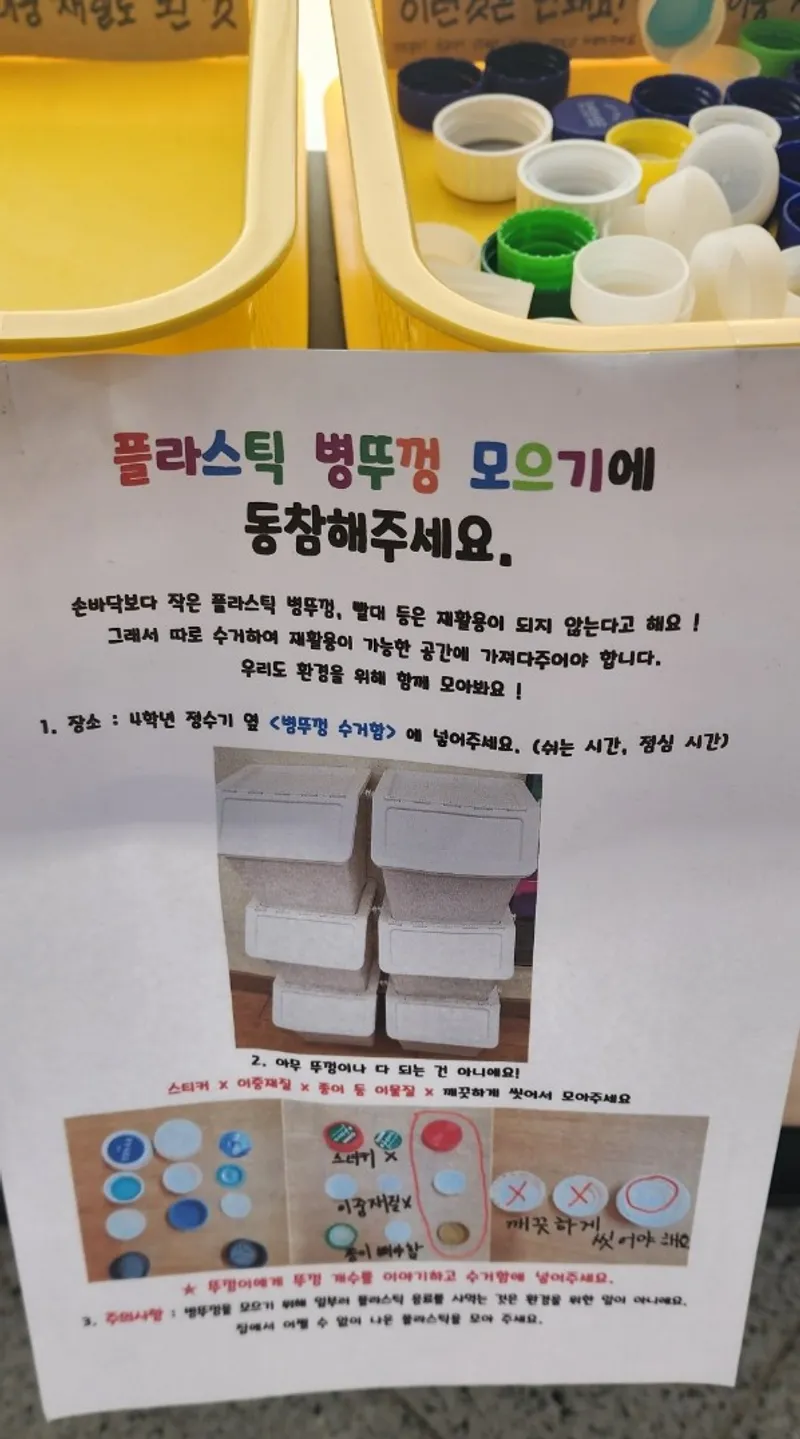 재질도 된 것
이런것은 안돼요!
플라스틱 병뚜껑 모으기에
동참해주세요.
손바닥보다 작은 플라스틱 병뚜껑, 빨대 등은 재활용이 되지 않는다고 해요 !
그래서 따로 수거하여 재활용이 가능한 공간에 가져다주어야 합니다.
우리도 환경을 위해 함께 모아봐요 !
1. 장소 : 4학년 정수기 옆 <병뚜껑 수거함> 에 넣어주세요. (쉬는 시간, 점심 시간)
2. 아무 뚜껑이나 다 되는 건 아니에요!
스티커 X 이중재질 X 종이 등 이물질 X 깨끗하게 씻어서 모아주세요
스티커 X
이중재질X
종이 빼야함
깨끗하게
씻어야 해요
★ 뚜껑이에게 뚜껑 개수를 이야기하고 수거함에 넣어주세요.
3. 주의사항 : 병뚜껑을 모으기 위해 일부러 플라스틱 음료를 사먹는 것은 환경을 위한 일이 아니에요.
집에서 어쩔 수 없이 나온 플라스틱을 모아 주세요.